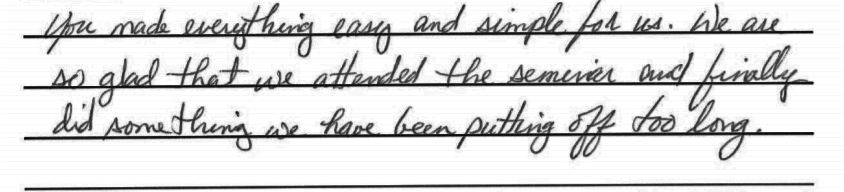 You made everything easy and simple for us. We are
so glad that we attended the seminar and finally
did something we have been putting off too long.